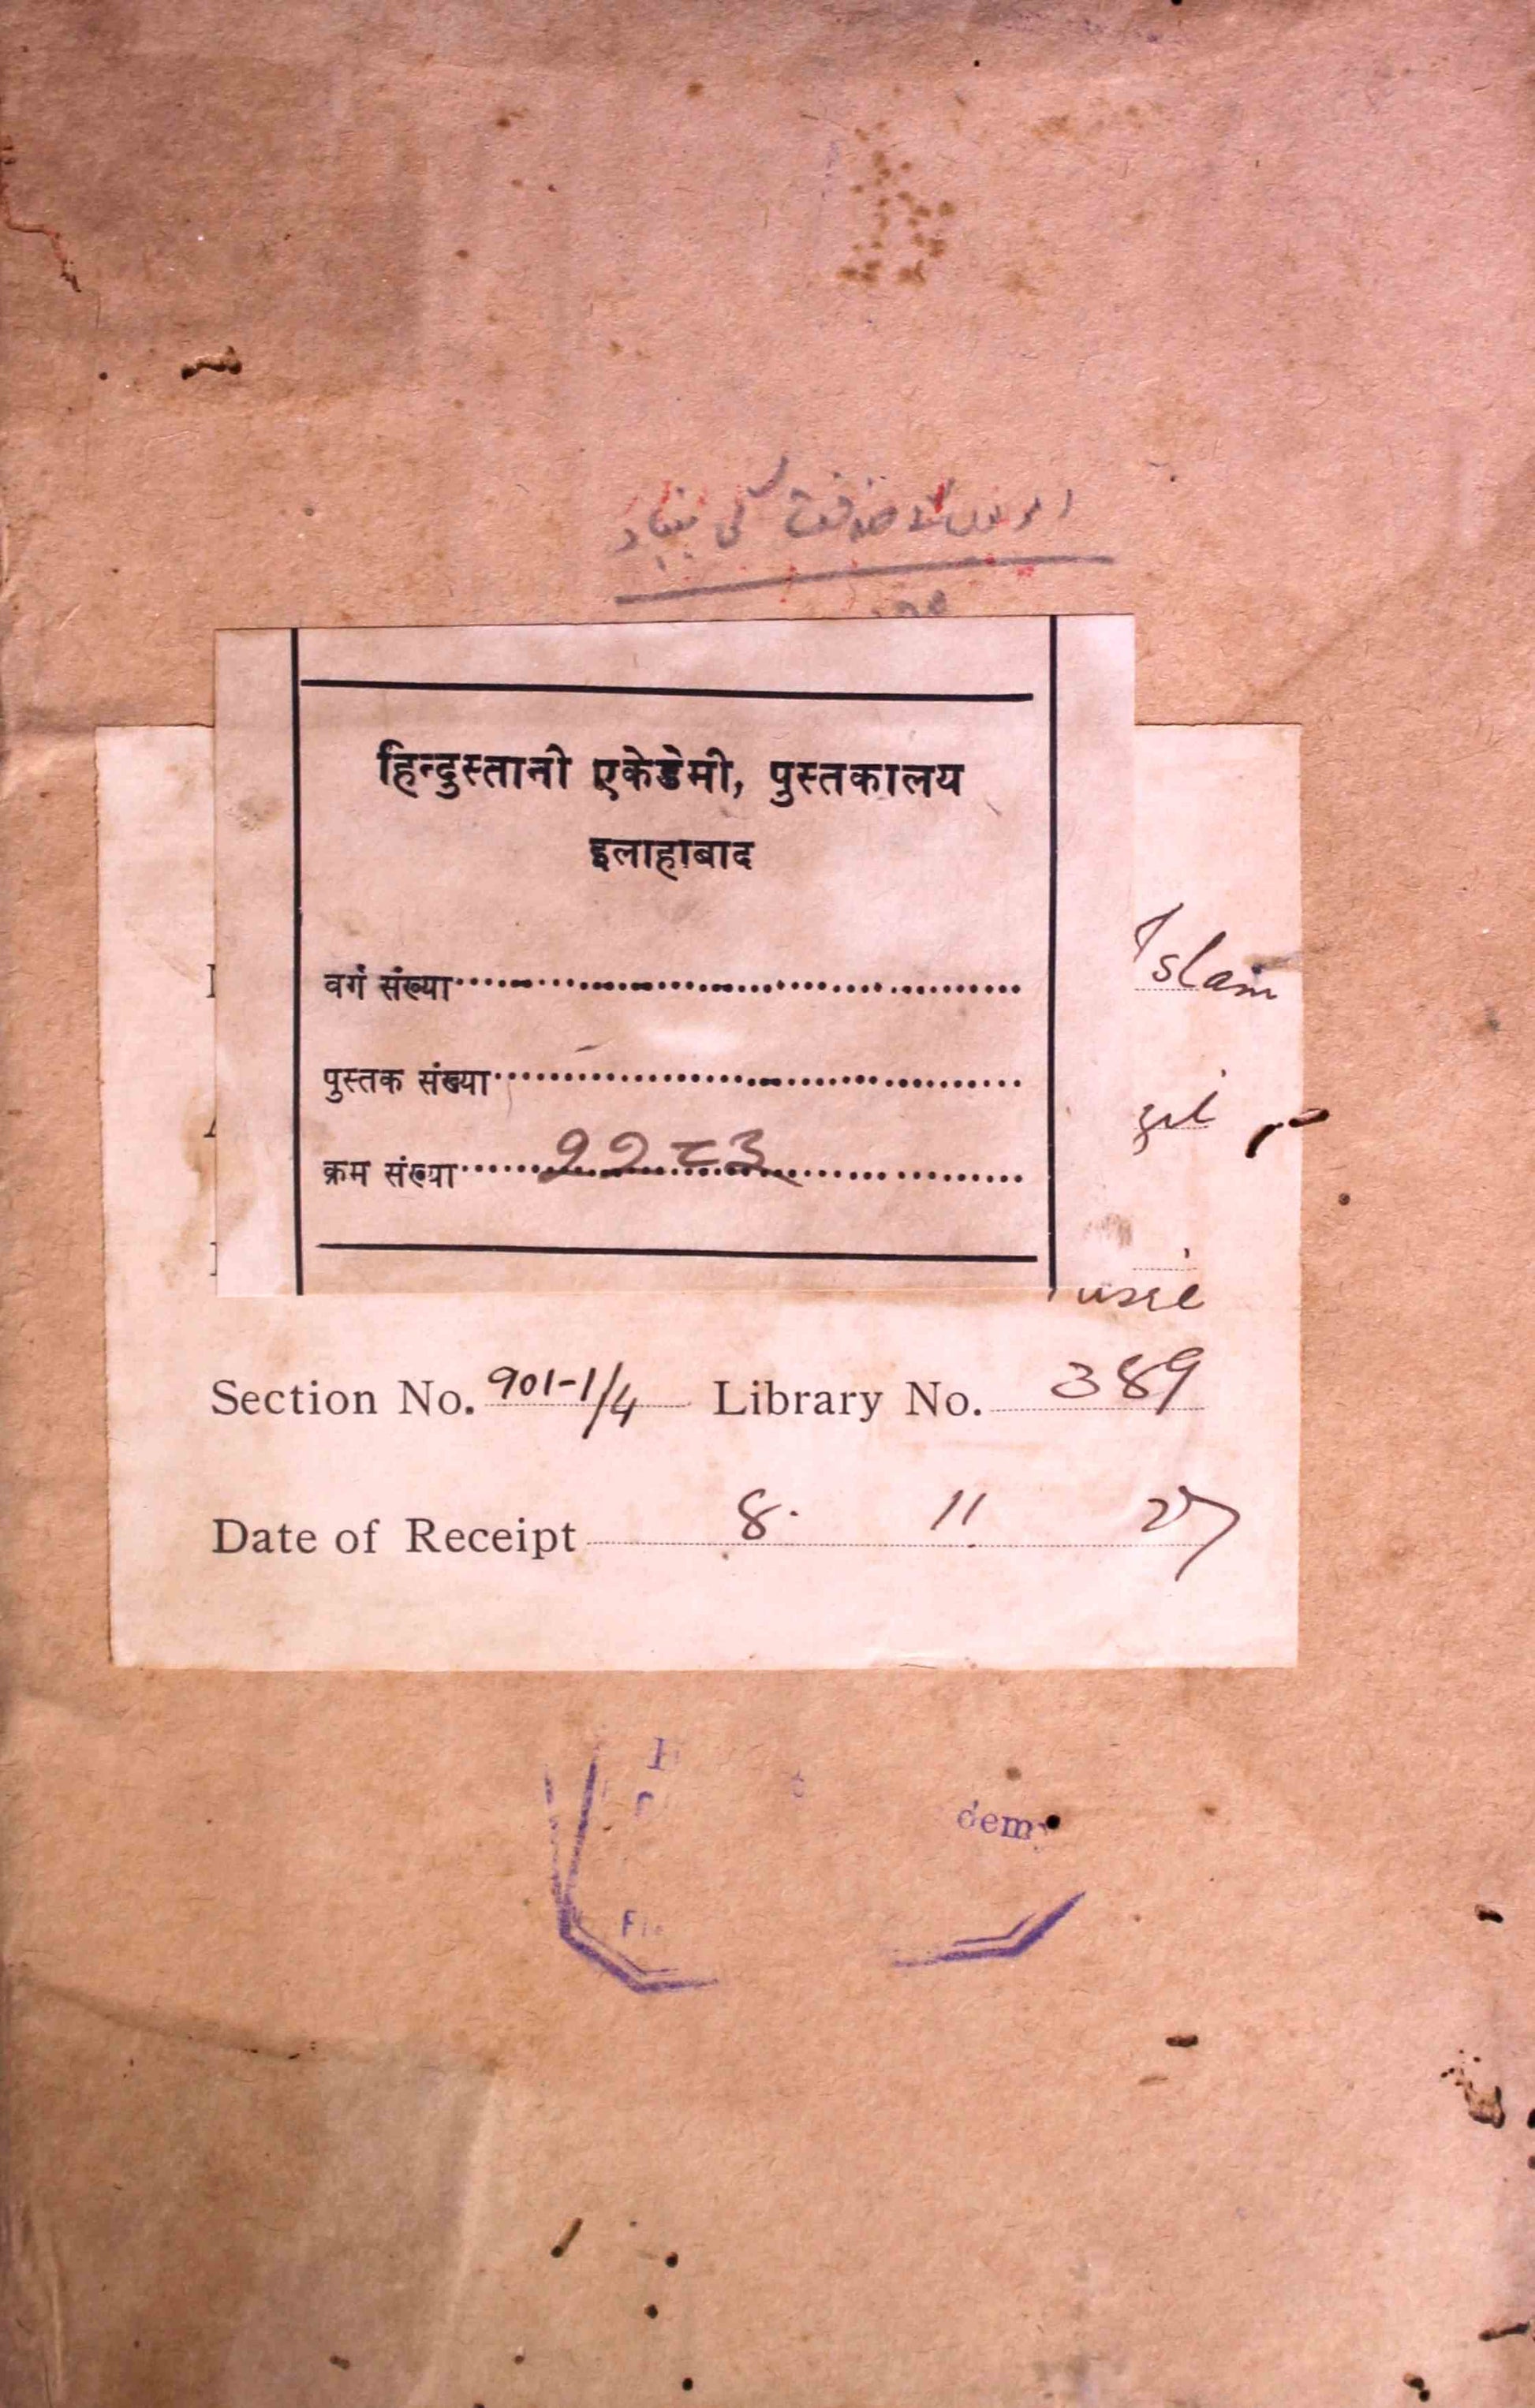 کی بنیاد
हिन्दुस्तानी एकेडेमी, पुस्तकालय
इलाहाबाद
वर्ग संख्या
Islam
पुस्तक संख्या
क्रम संख्या ११८३
Section No. 901-1/4 Library No. 389
Date of Receipt 8. 11 27